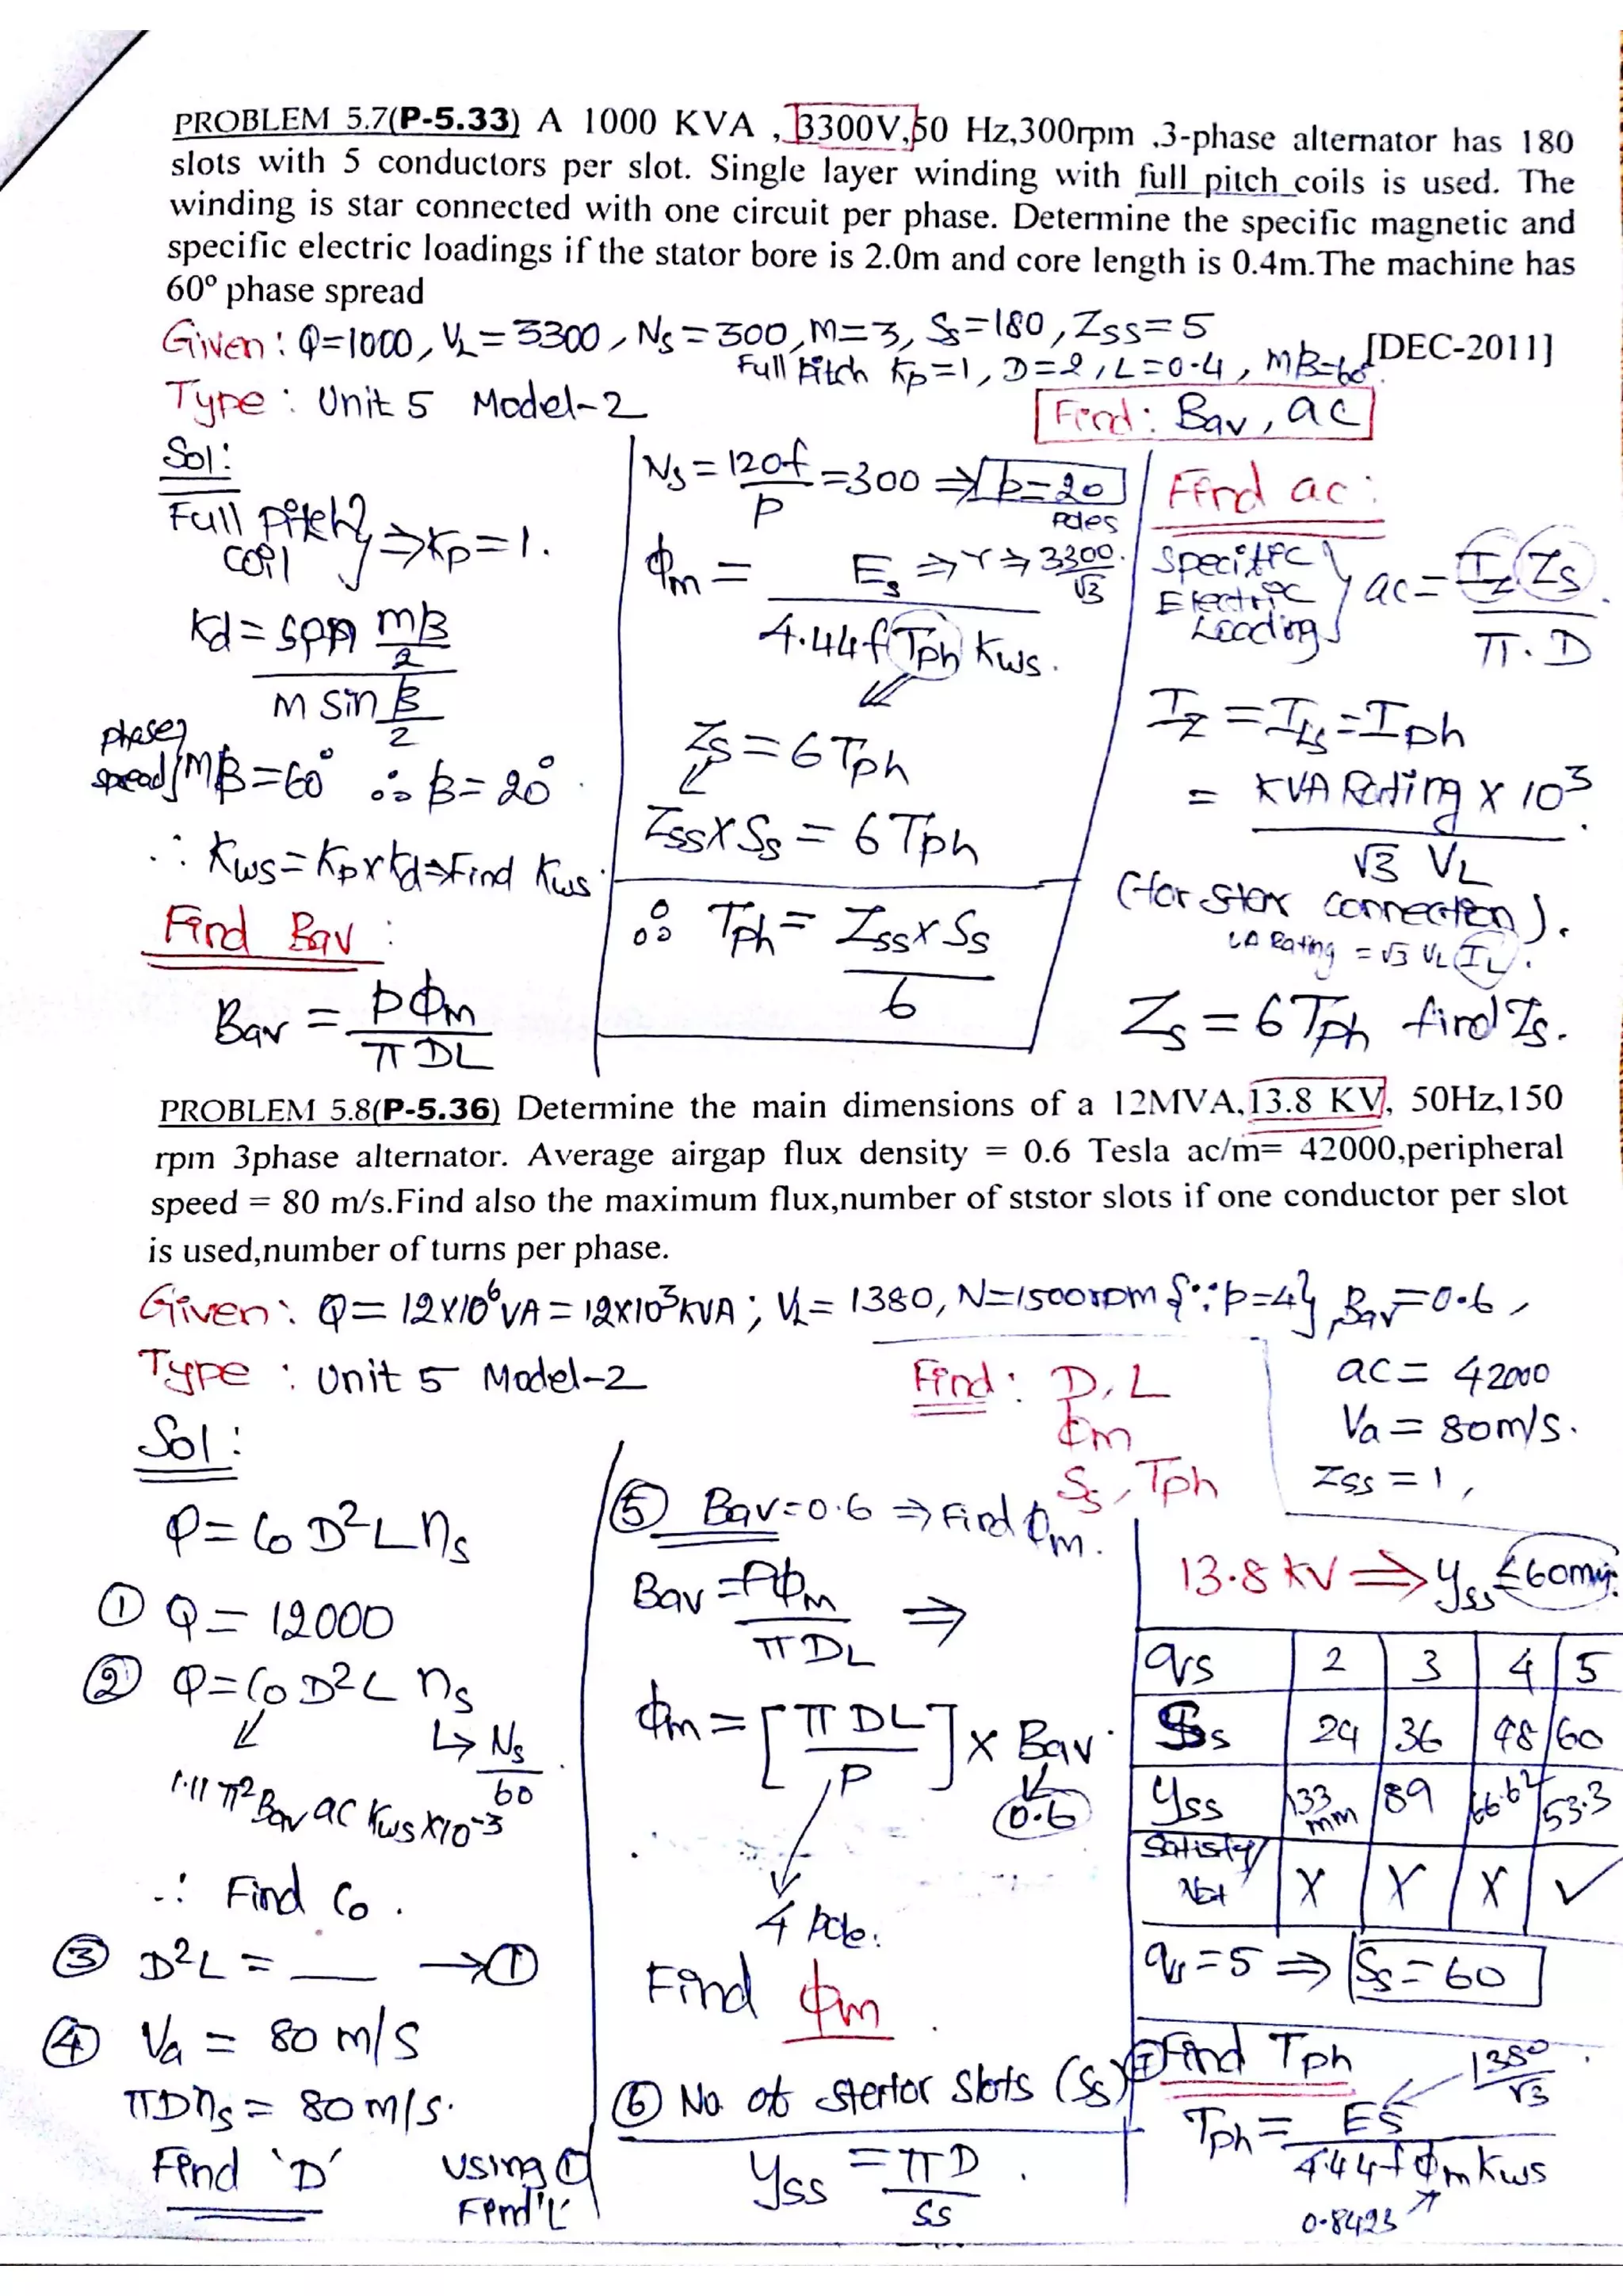 PROBLEM 5.7(P-5.33) A 1000 KVA ,3300V,50 Hz,300rpm ,3-phase alternator has 180
slots with 5 conductors per slot. Single layer winding with full pitch coils is used. The
winding is star connected with one circuit per phase. Determine the specific magnetic and
specific electric loadings if the stator bore is 2.0m and core length is 0.4m.The machine has
60° phase spread
Given: Q=1000, VL=3300, Ns=300, M=3, Ss=180, Zss=5
[DEC-2011]
Full Pitch Kp=1, D=2, L=0.4, MB=60°
Type: Unit 5 Model-2
Find: Bav, ac
Sol:
Full pitch } ⇒ Kp=1.
coil
Kd = sin mβ/2
m sin β/2
phase
spread } mβ=60° ∴ β=20°
∴ Kws=Kp×Kd⇒Find Kws
Find Bav:
Bav = PΦm
πDL
Ns=120f/P =300 ⇒ p=20
Poles
Φm = Es ⇒ Y ⇒ 3300/√3
4.44f Tph Kws.
Zs = 6Tph
Zss×Ss = 6Tph
∴ Tph = Zss×Ss
6
Find ac:
Specific
Electric
Loading } ac = Iz.Zs
π.D
Iz = ILs = Iph
= KVA Rating × 10³
√3 VL
(for star connection).
VA Rating = √3 VL IL.
Zs = 6Tph find Zs.
PROBLEM 5.8(P-5.36) Determine the main dimensions of a 12MVA,13.8 KV, 50Hz,150
rpm 3phase alternator. Average airgap flux density = 0.6 Tesla ac/m= 42000,peripheral
speed = 80 m/s.Find also the maximum flux,number of ststor slots if one conductor per slot
is used,number of turns per phase.
Given: Q = 12×10⁶VA = 12×10³KVA; VL = 1380, N=1500rpm {∵p=4}, Bav=0.6,
ac = 42000
Va = 80m/s.
Zss = 1,
Type : Unit 5 Model-2
Find: D, L
Φm
Ss, Tph
Sol:
Q = Co D²L ns
① Q = 12000
② Q = Co D²L ns
↳ Ns
60
1.11 π² Bav ac Kws×10⁻³
∴ Find Co.
③ D²L = ___ →①
④ Va = 80 m/s
πDns = 80 m/s.
Find 'D'
using ①
Find 'L'
⑤ Bav=0.6 ⇒ Find Φm.
Bav = PΦm ⇒
πDL
Φm = [πDL/P] × Bav
0.6
4 Pole.
Find Φm.
⑥ No. of stator slots (Ss)
Yss = πD
Ss
13.8 KV ⇒ Yss ≤ 60mm
qs 2 3 4 5
Ss 24 36 48 60
Yss 133 mm 89 66.62 53.3
Satisfy/
Not X X X ✓
qs=5 ⇒ Ss=60
⑦ Find Tph
1380
√3
Tph = Es
4.44 f Φm Kws
0.8423